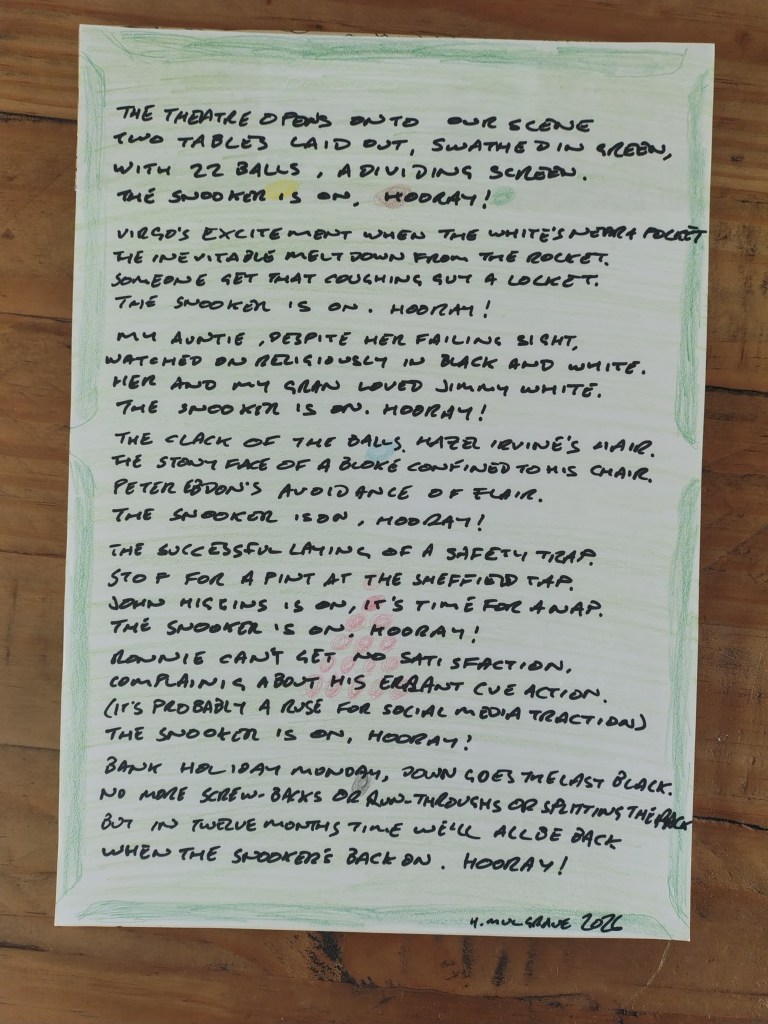 THE THEATRE OPENS ONTO OUR SCENE
TWO TABLES LAID OUT, SWATHED IN GREEN,
WITH 22 BALLS, A DIVIDING SCREEN.
THE SNOOKER IS ON, HOORAY!
VIRGO'S EXCITEMENT WHEN THE WHITE'S NEAR A POCKET
THE INEVITABLE MELTDOWN FROM THE ROCKET.
SOMEONE GET THAT COUGHING GUY A LOCKET.
THE SNOOKER IS ON. HOORAY!
MY AUNTIE, DESPITE HER FAILING SIGHT,
WATCHED ON RELIGIOUSLY IN BLACK AND WHITE.
HER AND MY GRAN LOVED JIMMY WHITE.
THE SNOOKER IS ON. HOORAY!
THE CLACK OF THE BALLS. HAZEL IRVINE'S HAIR.
THE STONY FACE OF A BLOKE CONFINED TO HIS CHAIR.
PETER EBDON'S AVOIDANCE OF FLAIR.
THE SNOOKER IS ON, HOORAY!
THE SUCCESSFUL LAYING OF A SAFETY TRAP.
STOP FOR A PINT AT THE SHEFFIELD TAP.
JOHN HIGGINS IS ON, IT'S TIME FOR A NAP.
THE SNOOKER IS ON. HOORAY!
RONNIE CAN'T GET NO SATISFACTION,
COMPLAINIG ABOUT HIS ERRANT CUE ACTION.
(IT'S PROBABLY A RUSE FOR SOCIAL MEDIA TRACTION)
THE SNOOKER IS ON, HOORAY!
BANK HOLIDAY MONDAY, DOWN GOES THE LAST BLACK.
NO MORE SCREW-BACKS OR RUN-THROUGHS OR SPLITTING THE PACK
BUT IN TWELVE MONTHS TIME WE'LL ALL BE BACK
WHEN THE SNOOKER'S BACK ON. HOORAY!
H. MULGRAVE 2026